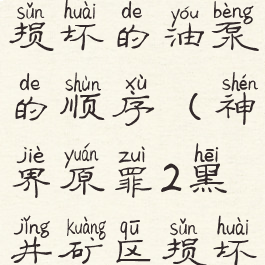 sǔn huài de yóu bèng
损坏的油泵
de shùn xù shén
的顺序（神
jiè yuán zuì hēi
界原罪2黑
jǐng kuàng qū sǔn huài
井矿区损坏